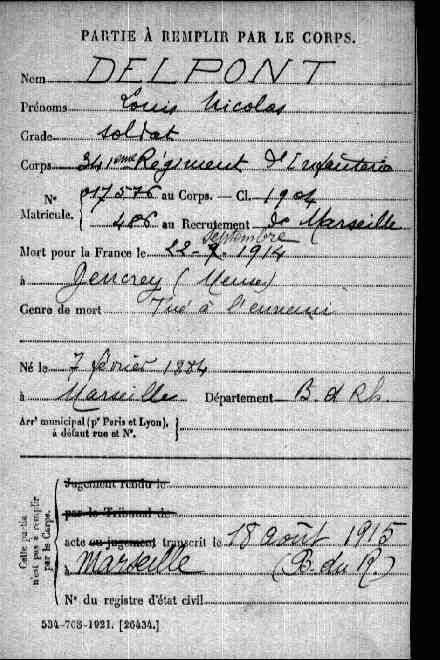 PARTIE À REMPLIR PAR LE CORPS.
Nom DELPONT
Prénoms Louis Nicolas
Grade soldat
Corps 341eme Régiment d'Infanterie
N° 017576 au Corps. — Cl. 1904
Matricule. 486 au Recrutement de Marseille
septembre
Mort pour la France le 22-9-1914
à (Meuse)
Genre de mort Tué à l'ennemi
Né le 7 février 1884
à Marseille Département B. d Rh.
Arrt municipal (pr Paris et Lyon),
à défaut rue et N°.
Cette partie
n'est pas à remplir
par le Corps.
Jugement rendu le
par le Tribunal de
acte ou jugement transcrit le 18 août 1915
à Marseille (B. du R.)
N° du registre d'état civil
534-708-1921. [26434.]